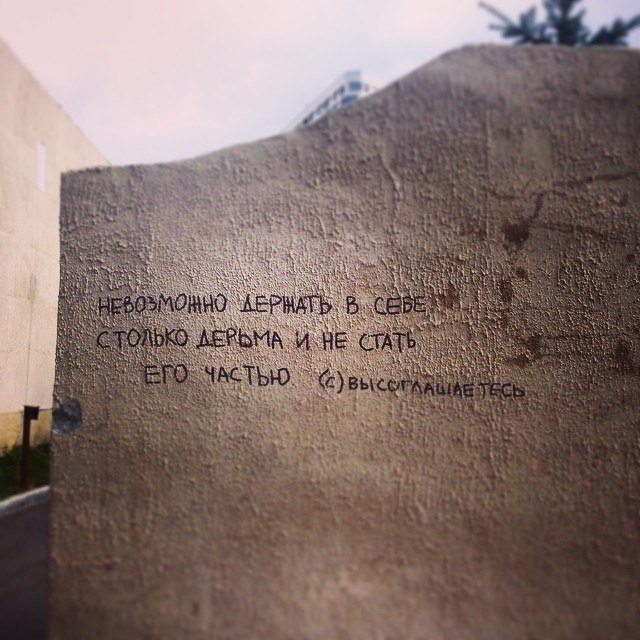 НЕВОЗМОЖНО ДЕРЖАТЬ В СЕБЕ
СТОЛЬКО ДЕРЬМА И НЕ СТАТЬ
ЕГО ЧАСТЬЮ (с) ВЫСОГЛАШАЕТЕСЬ